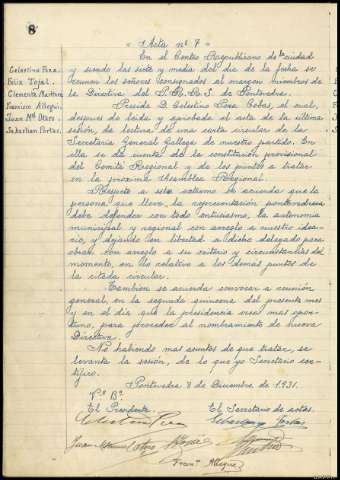 8
« Acta nº 7 »
Celestino Poza.
Felix Tojal.
Juan Mª Otero.
Sebastian Portas.
En el Centro Republicano de la ciudad
y siendo las siete y media del dia de la fecha se
reunen los señores consignados al margen miembros de
la Directiva del P. R. R. S. de Pontevedra.
Preside D. Celestino Poza Cobas, el cual,
despues de leida y aprobada el acta de la última
sesión, da lectura de una carta circular de la
Secretaria General Gallega de nuestro partido. En
ella se da cuenta de la constitución provisional
del Comité Regional y de los puntos a tratar
en la proxima Asamblea Regional.
Respecto a este extremo se acuerda que la
persona que lleve la representación pontevedresa
debe defender con todo entusiasmo, la autonomia
municipal y regional con arreglo a nuestro idea-
rio, y dejando en libertad a dicho delegado para
obrar con arreglo a su criterio y circunstancias del
momento, en lo relativo a los demas puntos de
la citada circular.
Tambien se acuerda convocar a reunión
general, en la segunda quincena del presente mes
y en el dia que la presidencia crea mas opor-
tuno, para proceder al nombramiento de nueva
Directiva.
No habiendo mas asuntos de que tratar, se
levanta la sesión, de lo que yo Secretario cer-
tifico.
Pontevedra 8 de Diciembre de 1931.
Vº Bº
El Presidente El Secretario de actas.
Celestino Poza Sebastian Portas
Juan Manuel Otero
Franº Allegue